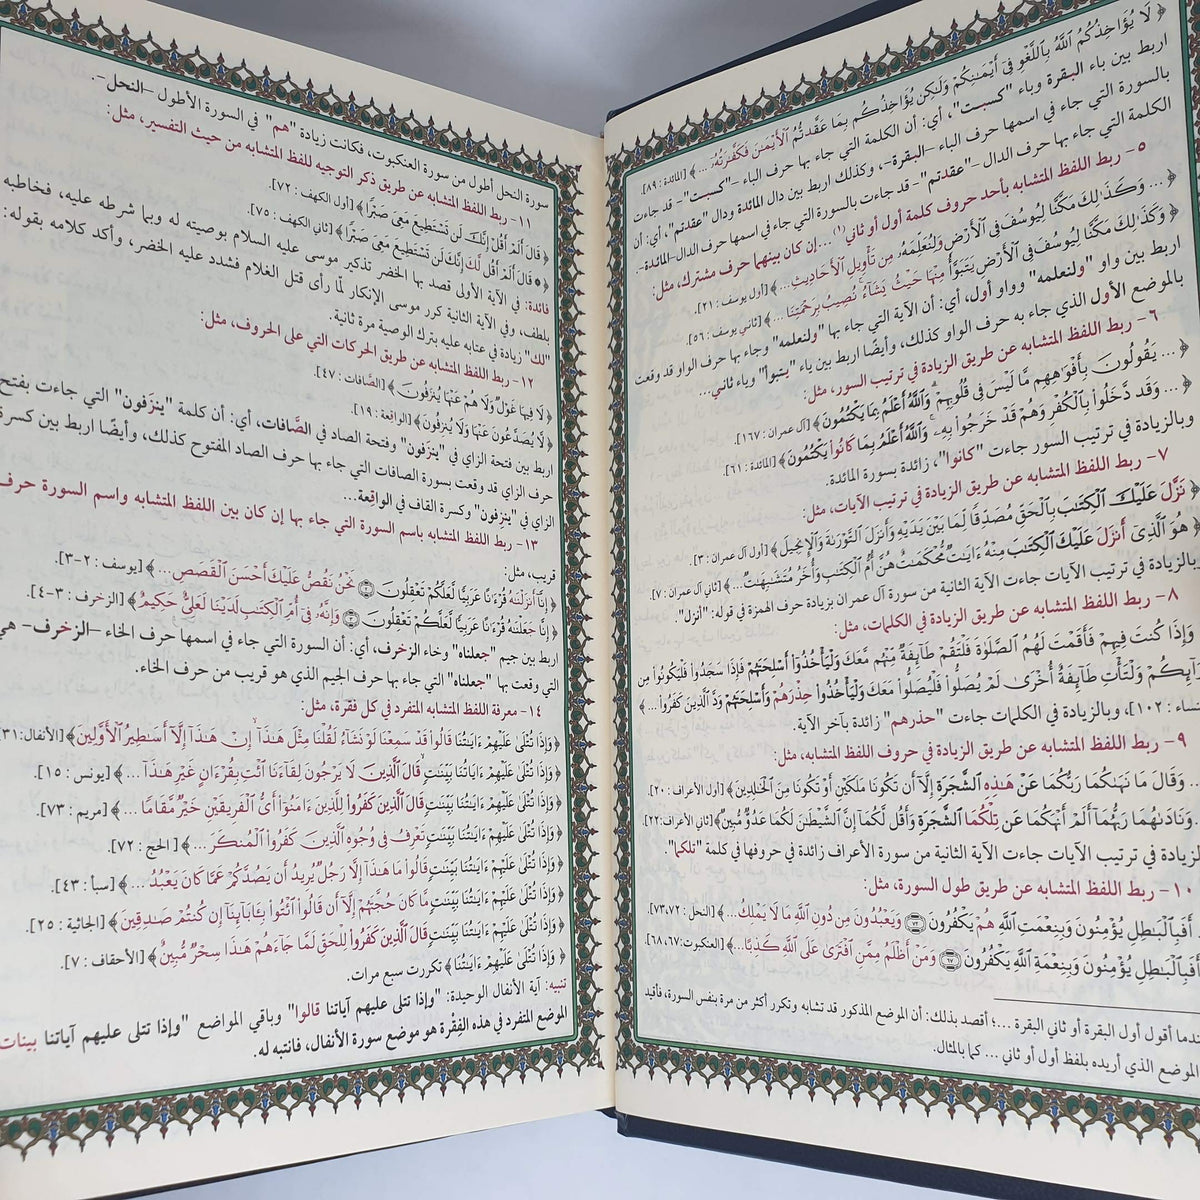 ﴿ لَا يُؤَاخِذُكُمُ اللَّهُ بِاللَّغْوِ فِي أَيْمَانِكُمْ وَلَٰكِن يُؤَاخِذُكُم بِمَا عَقَّدتُّمُ الْأَيْمَانَ فَكَفَّارَتُهُ ... ﴾ [المائدة : ٨٩].
اربط بين باء البقرة وباء "كسبت"، أي: أن الكلمة التي جاء بها حرف الباء –"كسبت"– قد جاءت
بالسورة التي جاء في اسمها حرف الباء –البقرة–، وكذلك اربط بين دال المائدة ودال "عقدتم"، أي: أن
الكلمة التي جاء بها حرف الدال –"عقدتم"– قد جاءت بالسورة التي جاء في اسمها حرف الدال –المائدة–.
٥- ربط اللفظ المتشابه بأحد حروف كلمة أول أو ثاني (١) ... إن كان بينهما حرف مشترك، مثل:
﴿ ... وَكَذَٰلِكَ مَكَّنَّا لِيُوسُفَ فِي الْأَرْضِ وَلِنُعَلِّمَهُ مِن تَأْوِيلِ الْأَحَادِيثِ ... ﴾ [أول يوسف : ٢١].
﴿ وَكَذَٰلِكَ مَكَّنَّا لِيُوسُفَ فِي الْأَرْضِ يَتَبَوَّأُ مِنْهَا حَيْثُ يَشَاءُ نُصِيبُ بِرَحْمَتِنَا ... ﴾ [ثاني يوسف : ٥٦].
اربط بين واو "ولنعلمه" وواو أول، أي: أن الآية التي جاء بها "ولنعلمه" وجاء بها حرف الواو قد وقعت
بالموضع الأول الذي جاء به حرف الواو كذلك، وأيضًا اربط بين ياء "يتبوأ" وياء ثاني...
٦- ربط اللفظ المتشابه عن طريق الزيادة في ترتيب السور، مثل:
﴿ ... يَقُولُونَ بِأَفْوَاهِهِم مَّا لَيْسَ فِي قُلُوبِهِمْ وَاللَّهُ أَعْلَمُ بِمَا يَكْتُمُونَ ﴾ [آل عمران : ١٦٧].
﴿ ... وَقَد دَّخَلُوا بِالْكُفْرِ وَهُمْ قَدْ خَرَجُوا بِهِ وَاللَّهُ أَعْلَمُ بِمَا كَانُوا يَكْتُمُونَ ﴾ [المائدة : ٦١].
وبالزيادة في ترتيب السور جاءت "كانوا"، زائدة بسورة المائدة.
٧- ربط اللفظ المتشابه عن طريق الزيادة في ترتيب الآيات، مثل:
﴿ نَزَّلَ عَلَيْكَ الْكِتَابَ بِالْحَقِّ مُصَدِّقًا لِّمَا بَيْنَ يَدَيْهِ وَأَنزَلَ التَّوْرَاةَ وَالْإِنجِيلَ ﴾ [أول آل عمران : ٣].
﴿ هُوَ الَّذِي أَنزَلَ عَلَيْكَ الْكِتَابَ مِنْهُ آيَاتٌ مُّحْكَمَاتٌ هُنَّ أُمُّ الْكِتَابِ وَأُخَرُ مُتَشَابِهَاتٌ ... ﴾ [ثاني آل عمران : ٧].
بالزيادة في ترتيب الآيات جاءت الآية الثانية من سورة آل عمران بزيادة حرف الهمزة في قوله: "أنزل".
٨- ربط اللفظ المتشابه عن طريق الزيادة في الكلمات، مثل:
وَإِذَا كُنتَ فِيهِمْ فَأَقَمْتَ لَهُمُ الصَّلَاةَ فَلْتَقُمْ طَائِفَةٌ مِّنْهُم مَّعَكَ وَلْيَأْخُذُوا أَسْلِحَتَهُمْ فَإِذَا سَجَدُوا فَلْيَكُونُوا مِن
وَرَائِكُمْ وَلْتَأْتِ طَائِفَةٌ أُخْرَىٰ لَمْ يُصَلُّوا فَلْيُصَلُّوا مَعَكَ وَلْيَأْخُذُوا حِذْرَهُمْ وَأَسْلِحَتَهُمْ وَدَّ الَّذِينَ كَفَرُوا ... ﴾
النساء : ١٠٢]، وبالزيادة في الكلمات جاءت "حذرهم" زائدة بآخر الآية.
٩- ربط اللفظ المتشابه عن طريق الزيادة في حروف اللفظ المتشابه، مثل:
... وَقَالَ مَا نَهَاكُمَا رَبُّكُمَا عَنْ هَٰذِهِ الشَّجَرَةِ إِلَّا أَن تَكُونَا مَلَكَيْنِ أَوْ تَكُونَا مِنَ الْخَالِدِينَ ﴾ [أول الأعراف : ٢٠].
... وَنَادَاهُمَا رَبُّهُمَا أَلَمْ أَنْهَكُمَا عَن تِلْكُمَا الشَّجَرَةِ وَأَقُل لَّكُمَا إِنَّ الشَّيْطَانَ لَكُمَا عَدُوٌّ مُّبِينٌ ﴾ [ثاني الأعراف: ٢٢].
لزيادة في ترتيب الآيات جاءت الآية الثانية من سورة الأعراف زائدة في حروفها في كلمة "تلكما".
١٠- ربط اللفظ المتشابه عن طريق طول السورة، مثل:
أَفَبِالْبَاطِلِ يُؤْمِنُونَ وَبِنِعْمَتِ اللَّهِ هُمْ يَكْفُرُونَ ٧٢ وَيَعْبُدُونَ مِن دُونِ اللَّهِ مَا لَا يَمْلِكُ ... ﴾ [النحل : ٧٢، ٧٣].
أَفَبِالْبَاطِلِ يُؤْمِنُونَ وَبِنِعْمَةِ اللَّهِ يَكْفُرُونَ ٦٧ وَمَنْ أَظْلَمُ مِمَّنِ افْتَرَىٰ عَلَى اللَّهِ كَذِبًا ... ﴾ [العنكبوت: ٦٧، ٦٨].
ندما أقول أول البقرة أو ثاني البقرة ...؛ أقصد بذلك: أن الموضع المذكور قد تشابه وتكرر أكثر من مرة بنفس السورة، فأقيد
الموضع الذي أريده بلفظ أول أو ثاني ... كما بالمثال.
سورة النحل أطول من سورة العنكبوت، فكانت زيادة "هم" في السورة الأطول –النحل–.
١١- ربط اللفظ المتشابه عن طريق ذكر التوجيه للفظ المتشابه من حيث التفسير، مثل:
﴿ قَالَ أَلَمْ أَقُلْ إِنَّكَ لَن تَسْتَطِيعَ مَعِيَ صَبْرًا ﴾ [أول الكهف : ٧٢].
﴿ ۞ قَالَ أَلَمْ أَقُل لَّكَ إِنَّكَ لَن تَسْتَطِيعَ مَعِيَ صَبْرًا ﴾ [ثاني الكهف : ٧٥].
فائدة: في الآية الأولى قصد بها الخضر تذكير موسى عليه السلام بوصيته له وبما شرطه عليه، فخاطبه
بلطف، وفي الآية الثانية كرر موسى الإنكار لمَّا رأى قتل الغلام فشدد عليه الخضر، وأكد كلامه بقوله:
"لك" زيادة في عتابه عليه بترك الوصية مرة ثانية.
١٢- ربط اللفظ المتشابه عن طريق الحركات التي على الحروف، مثل:
﴿ لَا فِيهَا غَوْلٌ وَلَا هُمْ عَنْهَا يُنزَفُونَ ﴾ [الصَّافات : ٤٧].
﴿ لَّا يُصَدَّعُونَ عَنْهَا وَلَا يُنزِفُونَ ﴾ [الواقعة : ١٩].
اربط بين فتحة الزاي في "ينزَفون" وفتحة الصاد في الصَّافات، أي: أن كلمة "ينزَفون" التي جاءت بفتح
حرف الزاي قد وقعت بسورة الصافات التي جاء بها حرف الصاد المفتوح كذلك، وأيضًا اربط بين كسرة
الزاي في "ينزِفون" وكسرة القاف في الواقِعة...
١٣- ربط اللفظ المتشابه باسم السورة التي جاء بها إن كان بين اللفظ المتشابه واسم السورة حرف
قريب، مثل:
﴿ إِنَّا أَنزَلْنَاهُ قُرْآنًا عَرَبِيًّا لَّعَلَّكُمْ تَعْقِلُونَ ٢ نَحْنُ نَقُصُّ عَلَيْكَ أَحْسَنَ الْقَصَصِ ... ﴾ [يوسف : ٢-٣].
﴿ إِنَّا جَعَلْنَاهُ قُرْآنًا عَرَبِيًّا لَّعَلَّكُمْ تَعْقِلُونَ ٣ وَإِنَّهُ فِي أُمِّ الْكِتَابِ لَدَيْنَا لَعَلِيٌّ حَكِيمٌ ﴾ [الزخرف : ٣-٤].
اربط بين جيم "جعلناه" وخاء الزخرف، أي: أن السورة التي جاء في اسمها حرف الخاء –الزخرف– هي
التي وقعت بها "جعلناه" التي جاء بها حرف الجيم الذي هو قريب من حرف الخاء.
١٤- معرفة اللفظ المتشابه المتفرد في كل فقرة، مثل:
﴿وَإِذَا تُتْلَىٰ عَلَيْهِمْ آيَاتُنَا قَالُوا قَدْ سَمِعْنَا لَوْ نَشَاءُ لَقُلْنَا مِثْلَ هَٰذَا إِنْ هَٰذَا إِلَّا أَسَاطِيرُ الْأَوَّلِينَ﴾ [الأنفال: ٣١
﴿وَإِذَا تُتْلَىٰ عَلَيْهِمْ آيَاتُنَا بَيِّنَاتٍ قَالَ الَّذِينَ لَا يَرْجُونَ لِقَاءَنَا ائْتِ بِقُرْآنٍ غَيْرِ هَٰذَا ... ﴾ [يونس : ١٥].
﴿وَإِذَا تُتْلَىٰ عَلَيْهِمْ آيَاتُنَا بَيِّنَاتٍ قَالَ الَّذِينَ كَفَرُوا لِلَّذِينَ آمَنُوا أَيُّ الْفَرِيقَيْنِ خَيْرٌ مَّقَامًا ... ﴾ [مريم : ٧٣].
﴿وَإِذَا تُتْلَىٰ عَلَيْهِمْ آيَاتُنَا بَيِّنَاتٍ تَعْرِفُ فِي وُجُوهِ الَّذِينَ كَفَرُوا الْمُنكَرَ ... ﴾ [الحج : ٧٢].
﴿وَإِذَا تُتْلَىٰ عَلَيْهِمْ آيَاتُنَا بَيِّنَاتٍ قَالُوا مَا هَٰذَا إِلَّا رَجُلٌ يُرِيدُ أَن يَصُدَّكُمْ عَمَّا كَانَ يَعْبُدُ ... ﴾ [سبأ : ٤٣].
﴿وَإِذَا تُتْلَىٰ عَلَيْهِمْ آيَاتُنَا بَيِّنَاتٍ مَّا كَانَ حُجَّتَهُمْ إِلَّا أَن قَالُوا ائْتُوا بِآبَائِنَا إِن كُنتُمْ صَادِقِينَ ﴾ [الجاثية : ٢٥].
﴿وَإِذَا تُتْلَىٰ عَلَيْهِمْ آيَاتُنَا بَيِّنَاتٍ قَالَ الَّذِينَ كَفَرُوا لِلْحَقِّ لَمَّا جَاءَهُمْ هَٰذَا سِحْرٌ مُّبِينٌ ﴾ [الأحقاف : ٧].
﴿ وَإِذَا تُتْلَىٰ عَلَيْهِمْ آيَاتُنَا﴾ تكررت سبع مرات.
تنبيه: آية الأنفال الوحيدة: "وإذا تتلى عليهم آياتنا قالوا" وباقي المواضع "وإذا تتلى عليهم آياتنا بينات
الموضع المتفرد في هذه الفِقْرة هو موضع سورة الأنفال، فانتبه له.